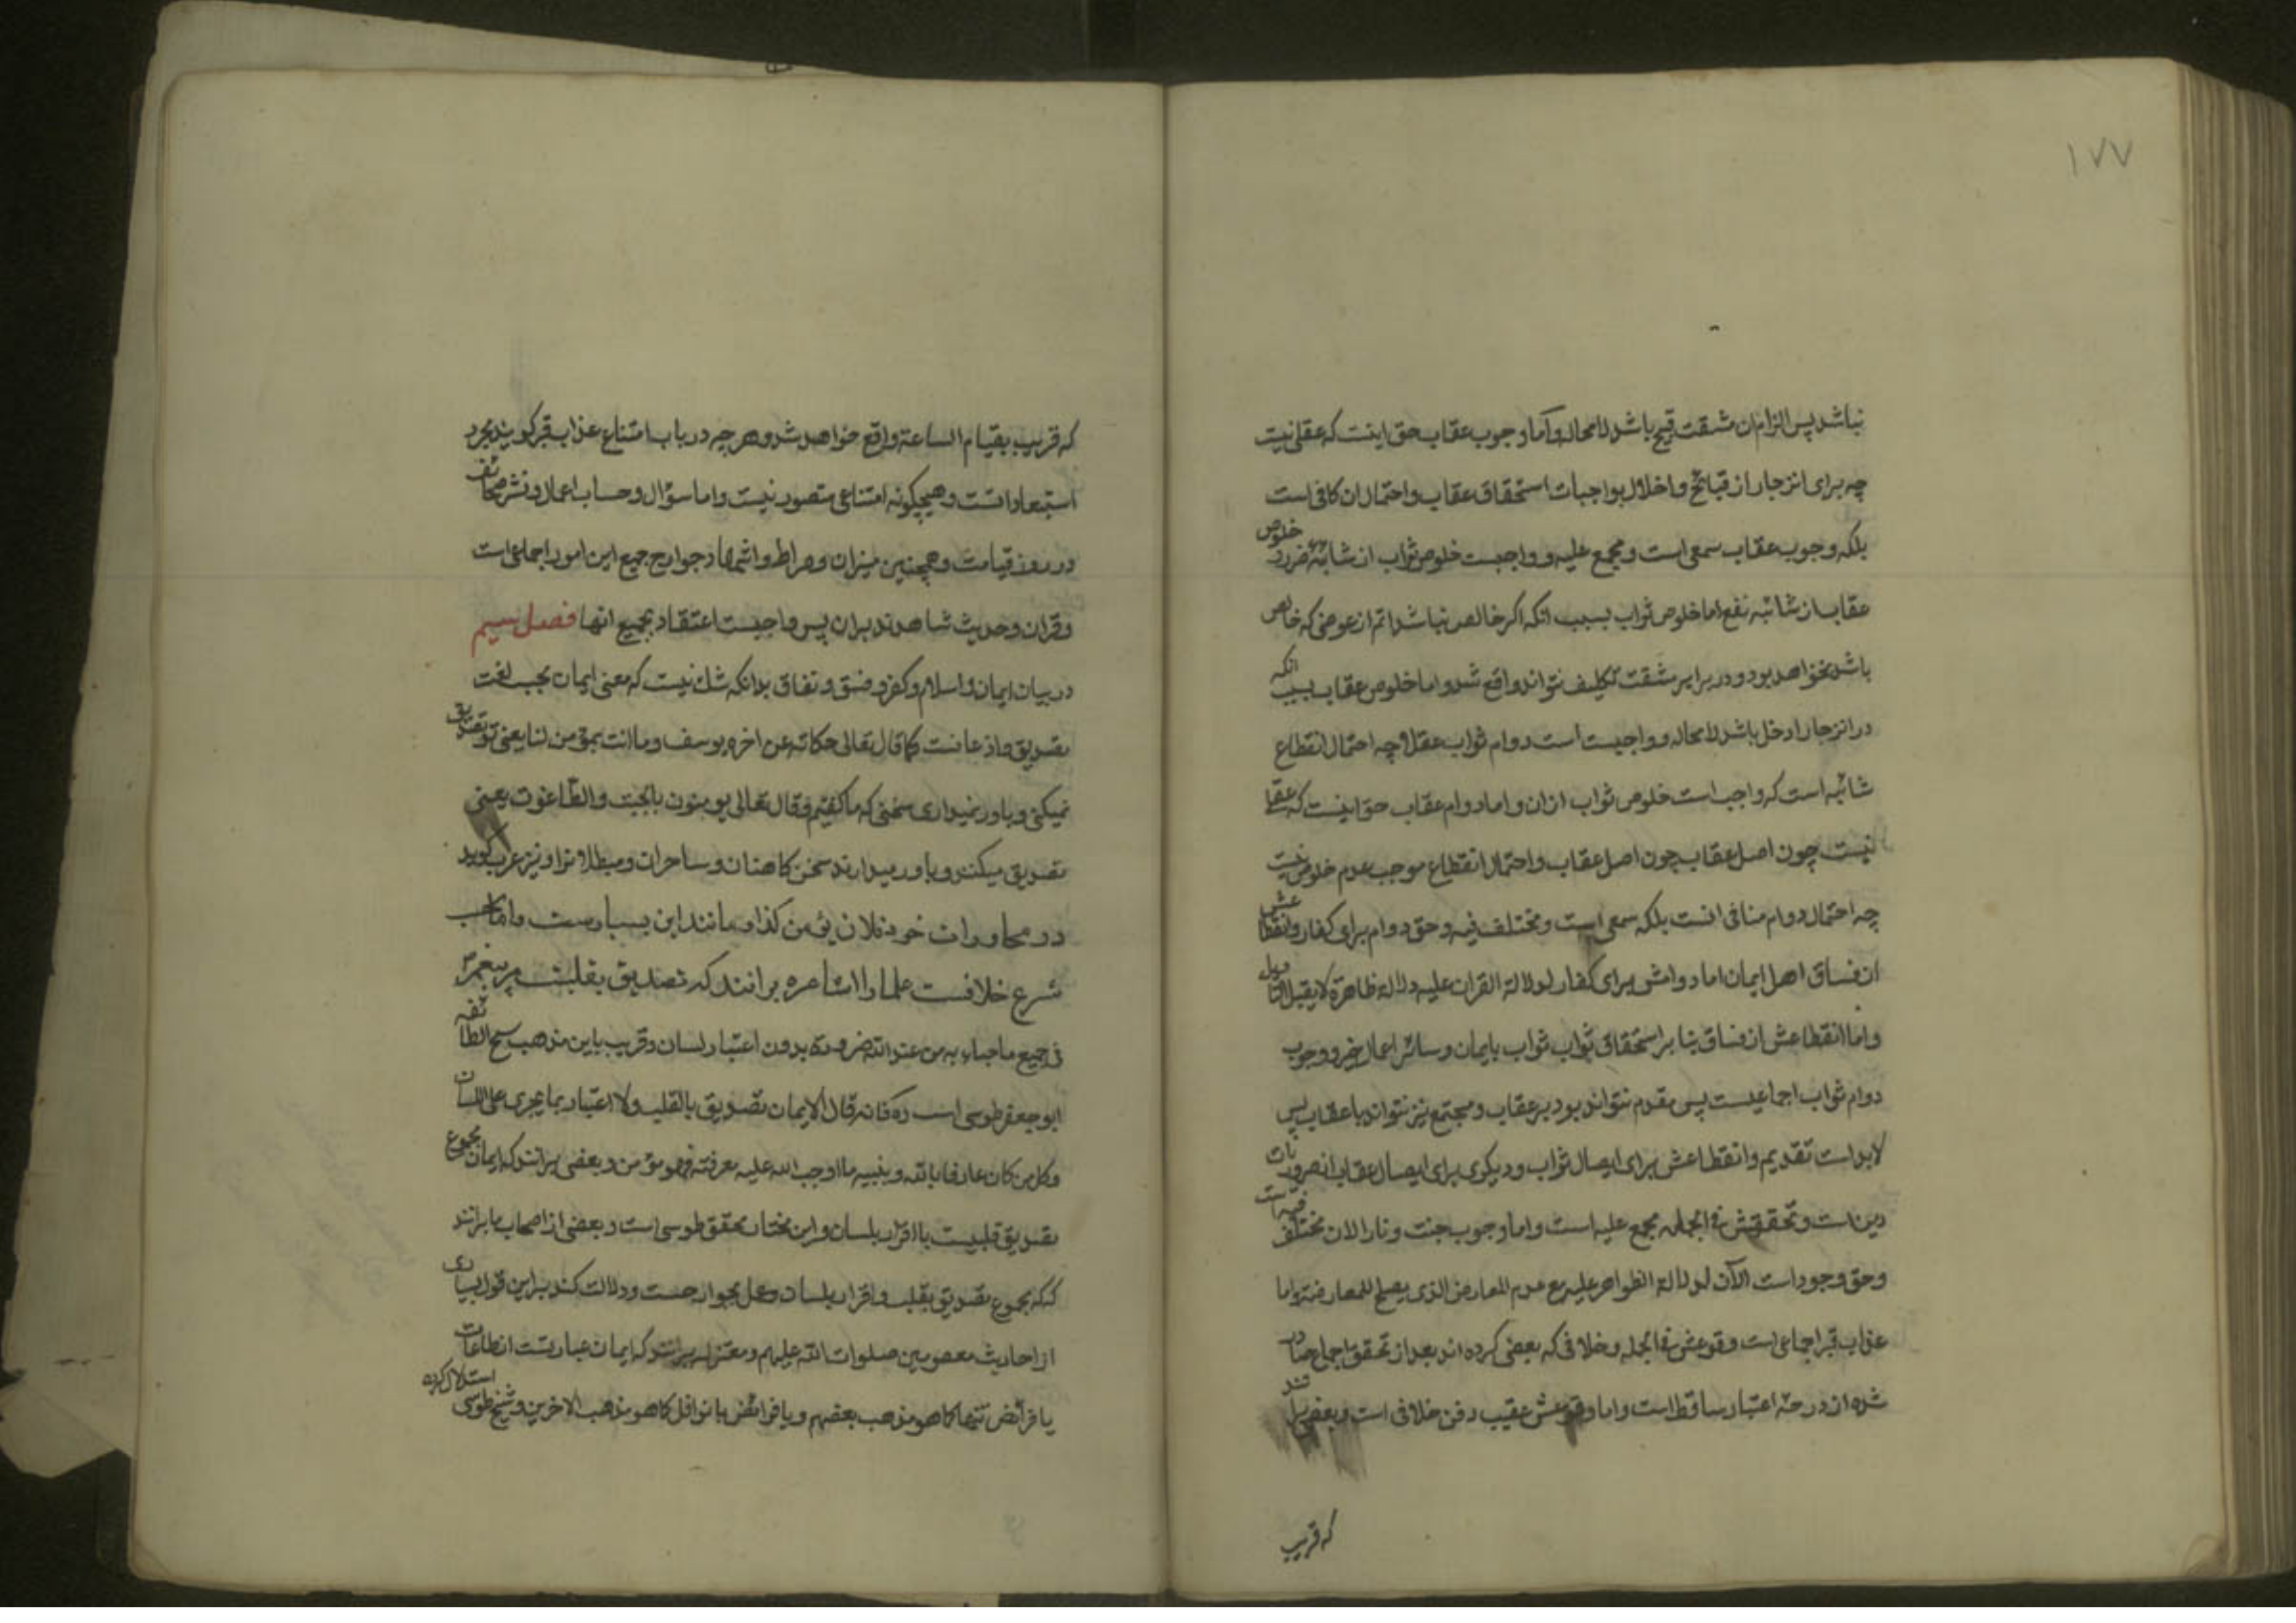 ١٧٧
نباشد پس الزام ان مشقت قبیح باشد لامحاله و اما وجوب عقاب حق اینست که عقلی نیست
چه برای انزجار از قبائح و اخلال بواجبات استحقاق عقاب و احتمال ان کافی است
بلکه وجوب عقاب سمعی است و مجمع علیه و واجبست خلوص ثواب از شائبه ضرر و خلوص
عقاب از شائبه نفع اما خلوص ثواب بسبب انکه اکر خالص نباشد اتم از عوضی که خالص
باشد نخواهد بود و در برابر مشقت تکلیف نتواند واقع شد و اما خلوص عقاب بسبب انکه
در انزجار ادخل باشد لامحاله و واجبست است دوام ثواب عقلا چه احتمال انقطاع
شائبه است که واجب است خلوص ثواب ازان و اما دوام عقاب حق اینست که عقلا
نیست چون اصل عقاب چون اصل عقاب و احتمال انقطاع موجب عدم خلوص نیست
چه احتمال دوام منافی انست بلکه سمعی است و مختلف فیه و حق دوام برای کفار و انقطاعش
از فساق اهل ایمان اما دوامش برای کفار لدلالة القران علیه دلالة ظاهرة لا یقبل التاویل
و اما انقطاعش از فساق بنا بر استحقاق ثواب ثواب بایمان و سائر اعمال خیر و وجوب
دوام ثواب اجماعیست پس مقدم نتواند بود بر عقاب و مجتمع نیز نتواند با عقاب پس
لابد است تقدیم و انقطاعش برای ایصال ثواب و دیکری برای ایصال عقاب از ضروریات
دین است و تحققش فی الجمله مجمع علیه است و اما وجوب جنت و نار الان مختلف فیه است
و حق وجود است الآن لدلالة الظواهر علیه مع عدم المعارض الذی یصلح للمعارضة و اما
عذاب قبر اجماعی است وقوعش فی الجمله و خلافی که بعضی کرده اند بعد از تحقق اجماع صادر
شده از درجه اعتبار ساقط است و اما وقوعش عقیب دفن خلافی است و بعضی برانند
که قریب
که قریب بقیام الساعة واقع خواهد شد و هر چه در باب امتناع عذاب قبر کویند مجرد
استبعاد است و هیچکونه امتناعی متصور نیست و اما سؤال و حساب اعمال و نشر صحائف
در روز قیامت و همچنین میزان و صراط و اشهاد جوارح جمیع این امور اجماعی است
و قران و حدیث شاهدند بران پس واجبست اعتقاد بجمیع انها فصل سیم
در بیان ایمان و اسلام و کفر و فسق و نفاق بدانکه شک نیست که معنی ایمان بحسب لغت
تصدیق و اذعانست کما قال تعالی حکایة عن اخوه یوسف و ما انت بمؤمن لنا یعنی تو تصدیق
نمیکنی و باور نمیداری سخنی که ما کفتیم و قال تعالی یومنون بالجبت و الطاغوت یعنی
تصدیق میکنند و باور میدارند سخن کاهنان و ساحران و مبطلانرا و نیز عرب کوید
در محاورات خود فلان یؤمن کذا و مانند این بسیارست و اما بحسب
شرع خلافست علما را اشاعره برانند که تصدیق بقلبست مر پیغمبر را
فی جمیع ما جاء به من عند الله ضرورة بدون اعتبار لسان و قریب باین مذهب شیخ الطائفه
ابوجعفر طوسی است ره فانه قال الایمان تصدیق بالقلب ولا اعتبار بما یجری علی اللسان
و کل من کان عارفا بالله و بنبیه ما اوجب الله علیه معرفته فهو مؤمن و بعضی برانند که ایمان مجموع
تصدیق قلبیست با اقرار بلسان و این مختار محقق طوسی است و بعضی از اصحاب ما برانند
که مجموع تصدیق بقلب و اقرار بلسان و عمل بجوارحست و دلالت کند براین قول بسیاری
از احادیث معصومین صلوات الله علیهم و معتزله برانند که ایمان عبارتست از طاعات
یا فرائض تنها کما هو مذهب بعضهم و یا فرائض با نوافل کما هو مذهب الاخرین و شیخ طوسی استدلال کرده